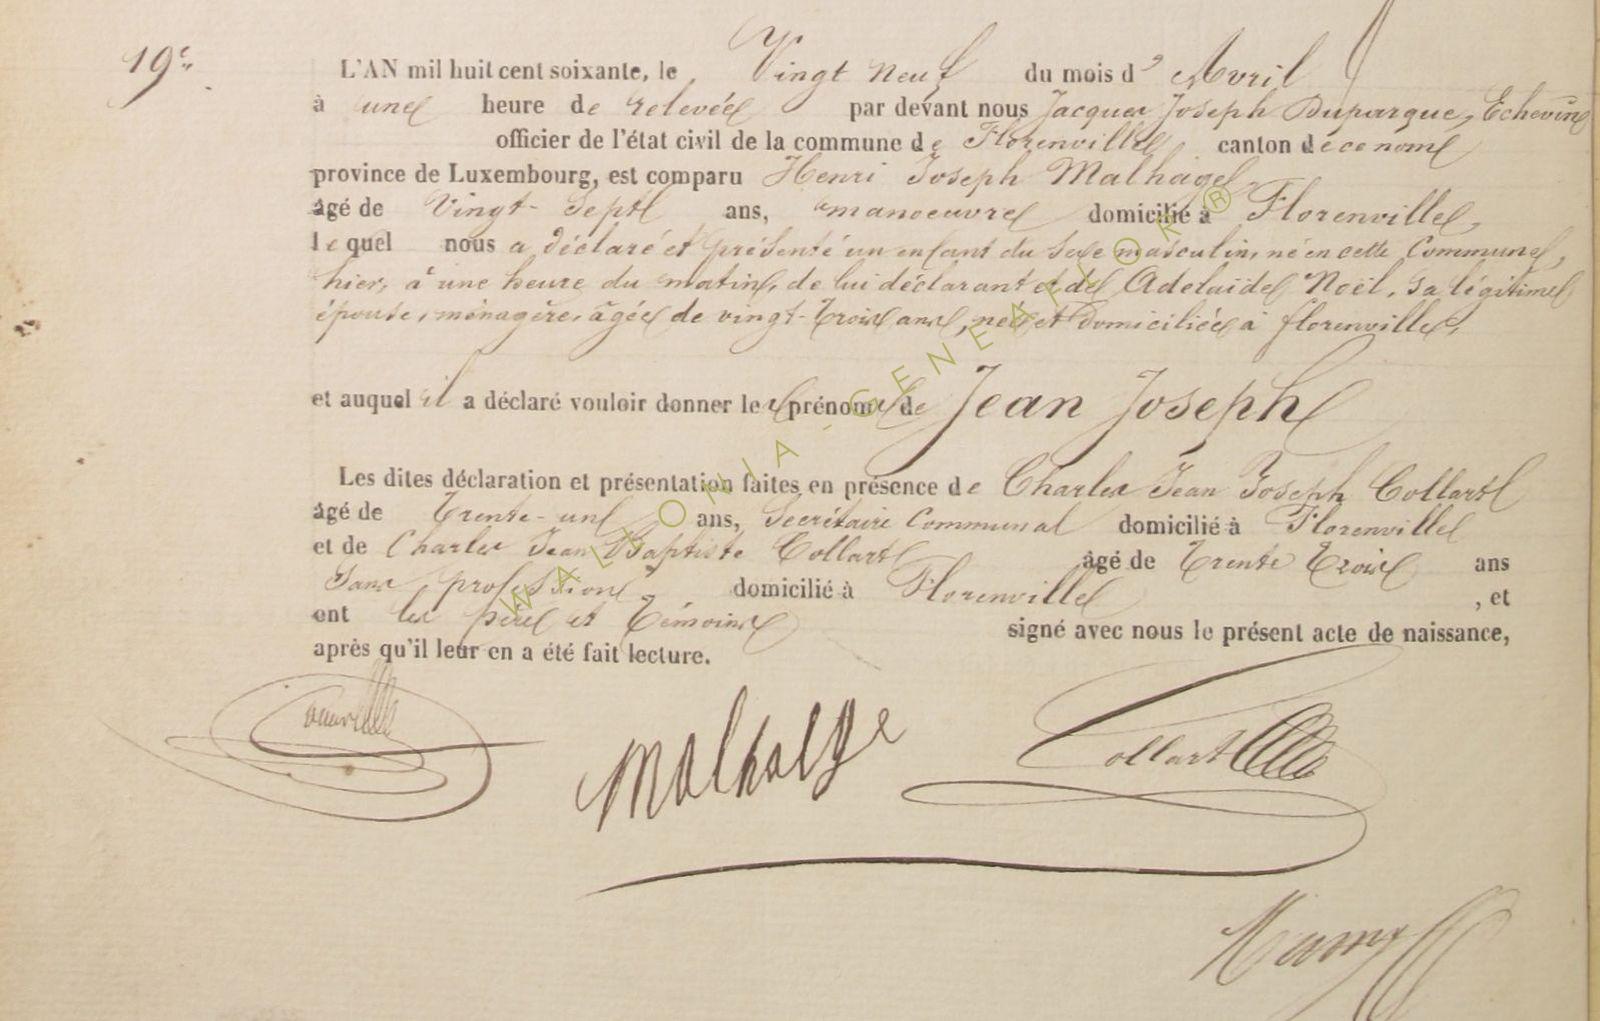 19e.
L'AN mil huit cent soixante, le Vingt neuf du mois d' Avril
à une heure de relevée par devant nous Jacques Joseph Duparque, Echevin
officier de l'état civil de la commune de Florenville canton de ce nom
province de Luxembourg, est comparu Henri Joseph Malhage
âgé de Vingt-Sept ans, manoeuvre domicilié à Florenville,
lequel nous a déclaré et présenté un enfant du sexe masculin, né en cette Commune,
hier, à une heure du matin, de lui déclarant et de Adelaïde Noël, sa légitime
épouse, ménagère, âgée de vingt-trois ans, née et domiciliée à florenville,
et auquel il a déclaré vouloir donner les prénoms de Jean Joseph
Les dites déclaration et présentation faites en présence de Charles Jean Joseph Collart
âgé de Trente-un ans, Secrétaire Communal domicilié à Florenville
et de Charles Jean Baptiste Collart âgé de Trente Trois ans
Sans profession, domicilié à Florenville , et
ont les père et Témoins signé avec nous le présent acte de naissance,
après qu'il leur en a été fait lecture.
Malhage Collart
WALLONIA-GENEAFLOR®